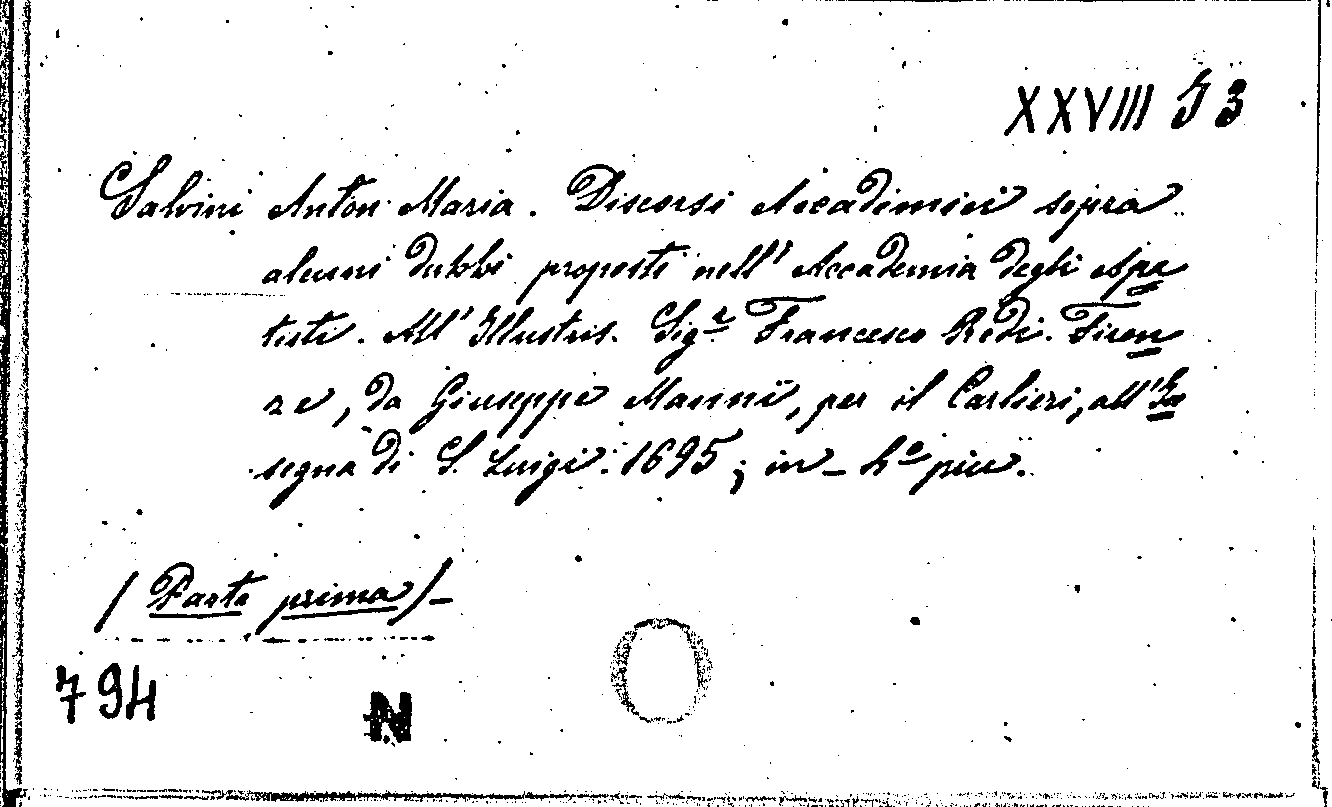 XXVIII J 3
Salvini Anton Maria. Discorsi Accademici sopra
alcuni dubbi proposti nell' Accademia degli Apa
tisti. All' Illustris. Sig.r Francesco Redi. Firen
ze, da Giuseppe Manni, per il Carlieri, all' In
segna di S. Luigi. 1695; in-4° picc.
(Parte prima)-
794
N